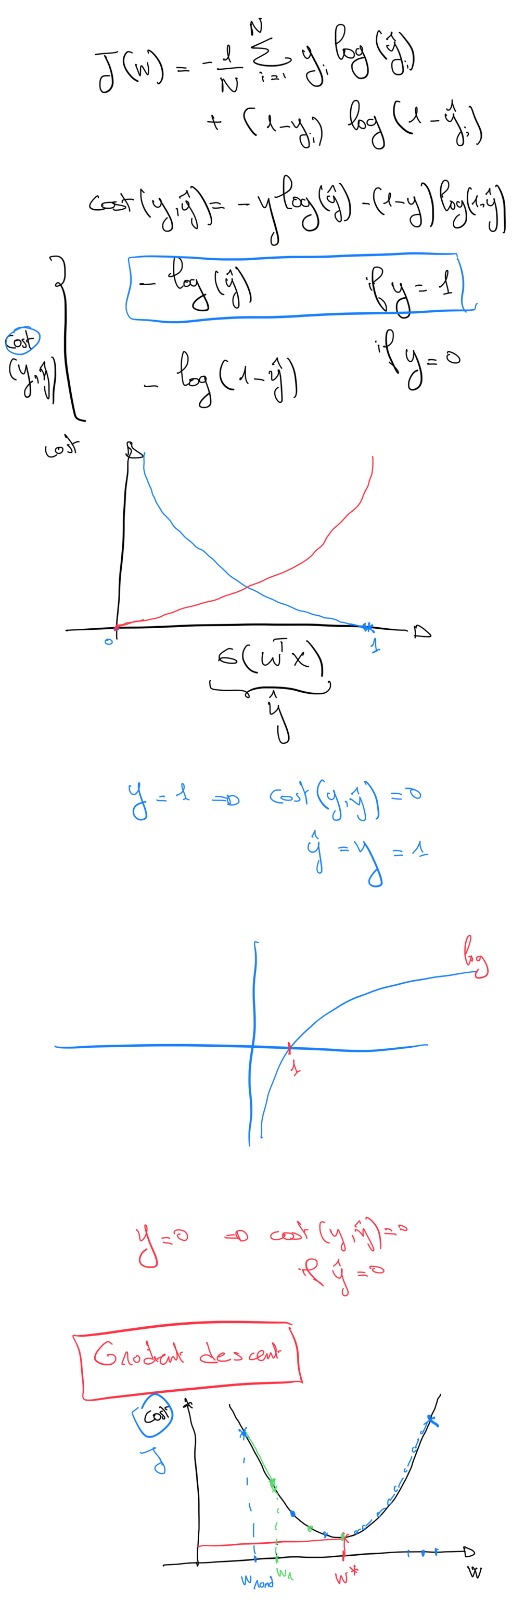 J(w) = -1/N Σ_{i=1}^{N} y_i log(ŷ_i)
+ (1-y_i) log(1-ŷ_i)
cost(y,ŷ) = -y log(ŷ) -(1-y) log(1-ŷ)
- log(ŷ) if y = 1
cost
(y,ŷ)
- log(1-ŷ) if y=0
cost
0 1
σ(w^T x)
ŷ
y = 1 ⇒ cost(y,ŷ) = 0
ŷ = y = 1
log
1
y=0 ⇒ cost(y,ŷ)=0
if ŷ=0
Gradient descent
cost
J
w_rand w_1 w* w